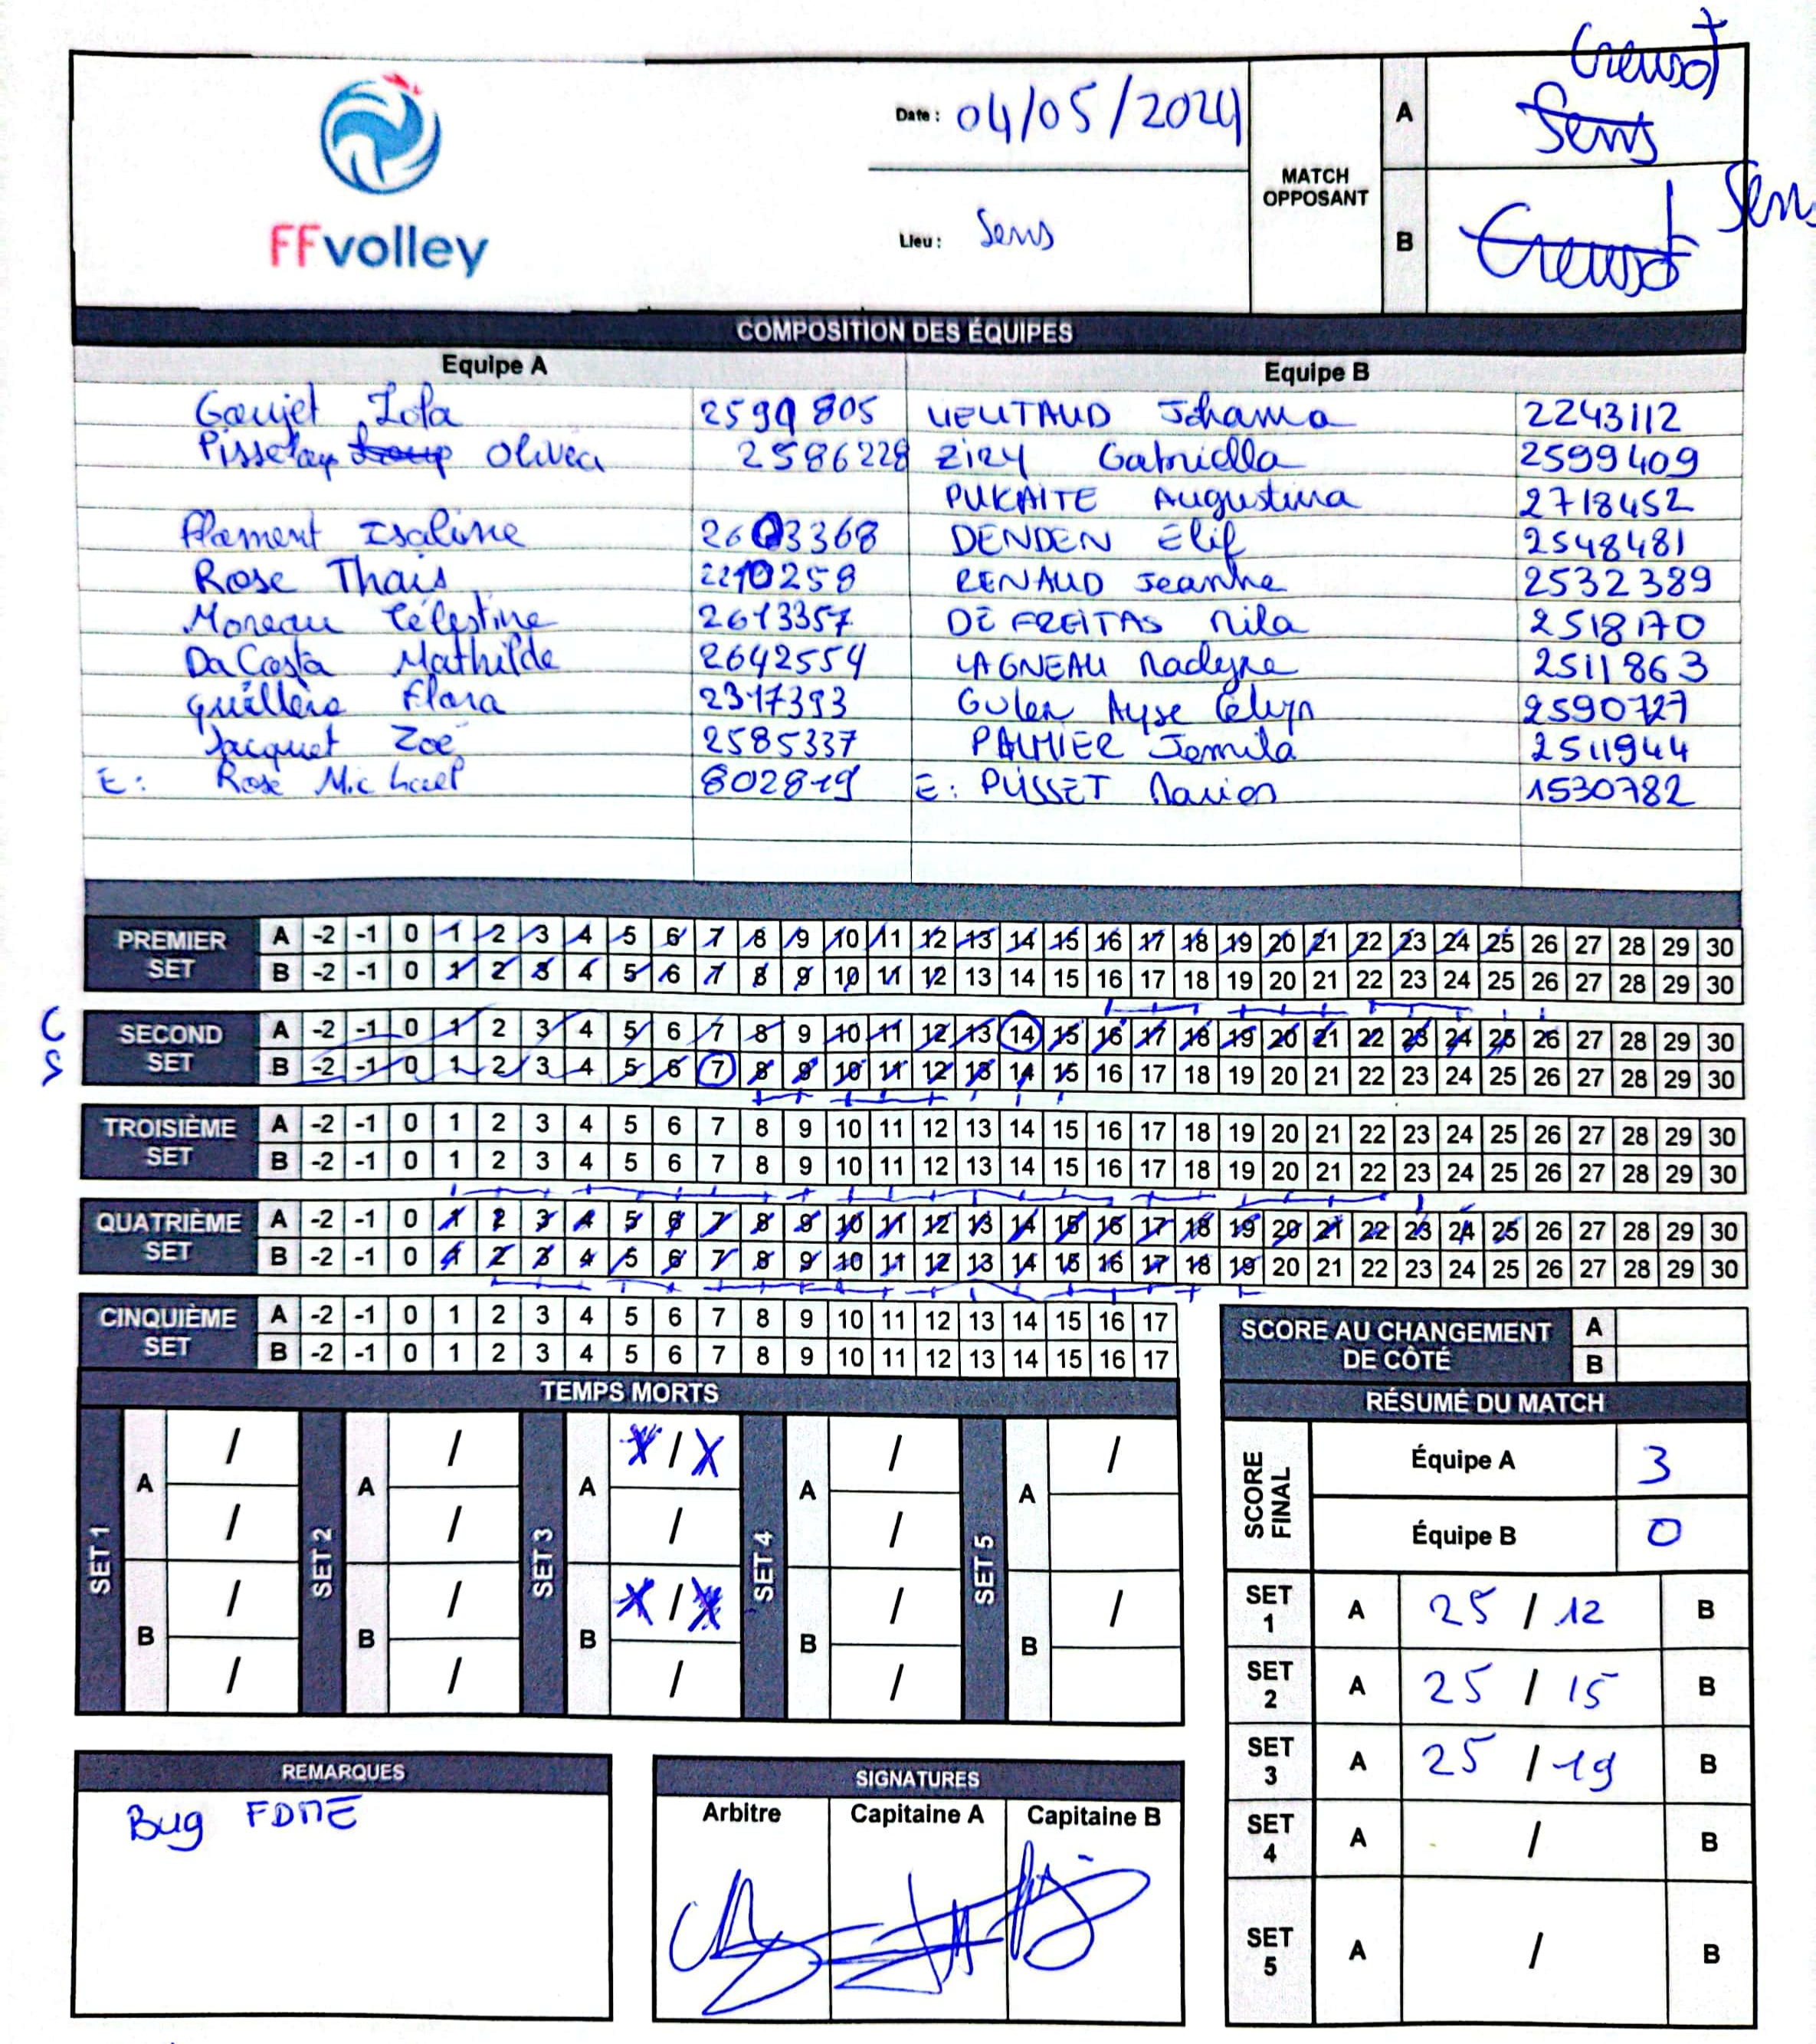 Creusot
Date : 04/05/2024
A
Sens
MATCH OPPOSANT
Sens
FFvolley
Lieu : Sens
B
Creusot
COMPOSITION DES ÉQUIPES
Equipe A Equipe B
Goujet Lola 2599805 LIEUTAUD Johanna 2243112
Pisseloup Olivia 2586228 ZIRY Gabriella 2599409
PUKAITE Augustina 2718452
Flament Isaline 2603368 DENDEN Elif 2548481
Rose Thais 2210258 RENAUD Jeanne 2532389
Moreau Célestine 2613357 DE FREITAS Nila 2518170
Da Costa Mathilde 2642554 LAGNEAU Nadeyre 2511863
Guillero Flora 2317393 Guler Ayse Celyn 2590727
Jacquet Zoé 2585337 PALMIER Jemila 2511944
E: Rose Michael 802819 E: PUSSET Marion 1530782
PREMIER SET
A -2 -1 0 1 2 3 4 5 6 7 8 9 10 11 12 13 14 15 16 17 18 19 20 21 22 23 24 25 26 27 28 29 30
B -2 -1 0 1 2 3 4 5 6 7 8 9 10 11 12 13 14 15 16 17 18 19 20 21 22 23 24 25 26 27 28 29 30
SECOND SET
C A -2 -1 0 1 2 3 4 5 6 7 8 9 10 11 12 13 14 15 16 17 18 19 20 21 22 23 24 25 26 27 28 29 30
S B -2 -1 0 1 2 3 4 5 6 7 8 9 10 11 12 13 14 15 16 17 18 19 20 21 22 23 24 25 26 27 28 29 30
TROISIÈME SET
A -2 -1 0 1 2 3 4 5 6 7 8 9 10 11 12 13 14 15 16 17 18 19 20 21 22 23 24 25 26 27 28 29 30
B -2 -1 0 1 2 3 4 5 6 7 8 9 10 11 12 13 14 15 16 17 18 19 20 21 22 23 24 25 26 27 28 29 30
QUATRIÈME SET
A -2 -1 0 1 2 3 4 5 6 7 8 9 10 11 12 13 14 15 16 17 18 19 20 21 22 23 24 25 26 27 28 29 30
B -2 -1 0 1 2 3 4 5 6 7 8 9 10 11 12 13 14 15 16 17 18 19 20 21 22 23 24 25 26 27 28 29 30
CINQUIÈME SET
A -2 -1 0 1 2 3 4 5 6 7 8 9 10 11 12 13 14 15 16 17
B -2 -1 0 1 2 3 4 5 6 7 8 9 10 11 12 13 14 15 16 17
SCORE AU CHANGEMENT DE CÔTÉ A
B
TEMPS MORTS
SET 1 A / / B / /
SET 2 A / / B / /
SET 3 A X / X / B X / X /
SET 4 A / / B / /
SET 5 A / B /
RÉSUMÉ DU MATCH
SCORE FINAL
Équipe A 3
Équipe B 0
SET 1 A 25 / 12 B
SET 2 A 25 / 15 B
SET 3 A 25 / 19 B
SET 4 A / B
SET 5 A / B
REMARQUES
Bug FDME
SIGNATURES
Arbitre Capitaine A Capitaine B